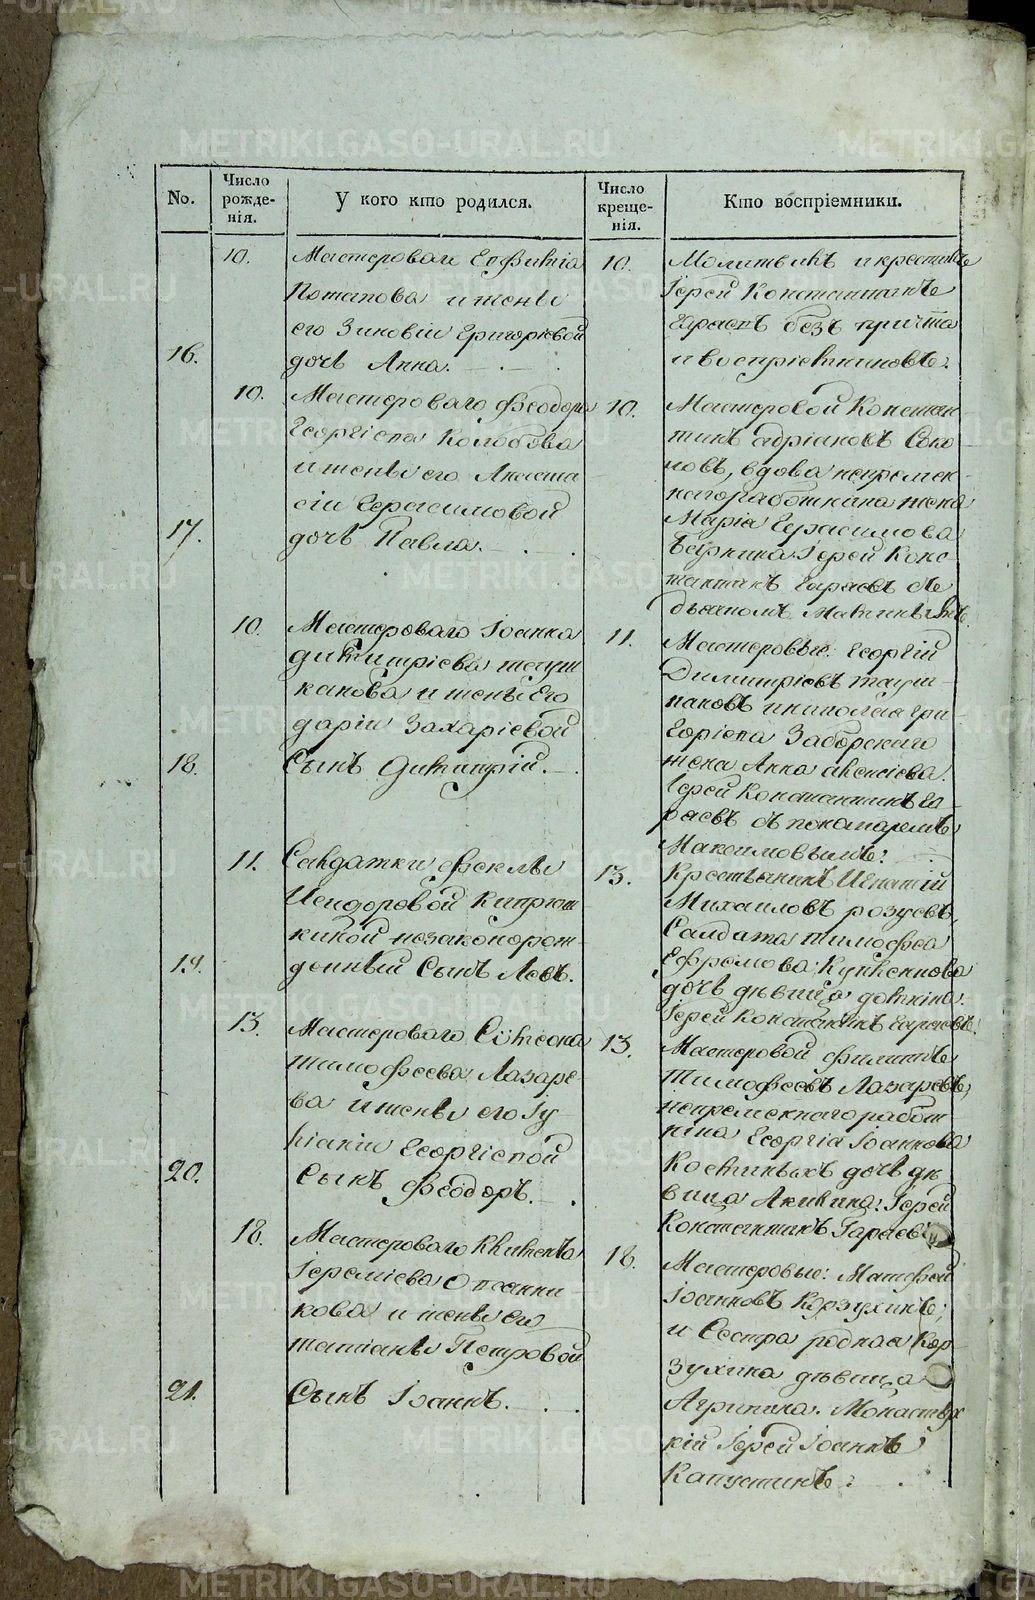 No.
Число рожде-нія.
У кого кто родился.
Число креще-нія.
Кто воспріемники.
16.
10.
Мастероваго
Потапова и жены
его Зиновіи Григорьевой
дочь Анна.
10.
Молитвилъ и крестилъ
Іерей Константинъ
Гараевъ безъ причта
и воспріемниковъ.
17.
10.
Мастероваго Феодора
Георгіева Колобова
и жены его Анаста
сіи Герасимовой
дочь Павла.
10.
Мастеровой Констан-
тинъ Адріановъ Соко
ловъ, вдова непремен-
наго работника жена
Марія Герасимова
Іерей Конс-
тантинъ Гараевъ съ
дьячкомъ
18.
10.
Мастероваго Іоанна
Димитріева
и жены его
Даріи Захаріевой
Сынъ Димитрій.
11.
Мастеровые: Георгій
Димитріевъ
Заборскаго
жена Анна Алексіева.
Іерей Константинъ Га-
раевъ съ пономаремъ
Максимовымъ.
19.
11.
Салдатки Феклы
Исидоровой
незаконорож-
денный Сынъ Левъ.
13.
Крестьянинъ Игнатій
Михаиловъ
Салдата Тимофеа
Ефремова
дочь дѣвица
Іерей Константинъ Гараевъ.
20.
13.
Мастероваго Сѵмеона
Тимофеева Лазаре-
ва и жены его Іу
ліаніи Георгіевой
Сынъ Феодоръ.
13.
Мастеровой Филиппъ
Тимофеевъ Лазаревъ,
непременнаго работ
ника Георгія Іоаннова
Костиныхъ дочь дѣ
вица Акилина. Іерей
Константинъ Гараевъ
21.
18.
Мастероваго Климента
Іереміева
и жены его
Татіаны Петровой
Сынъ Іоаннъ.
18.
Мастеровые: Матфей
Іоанновъ Корзухинъ,
и Сестра родная Кор-
зухина дѣвица
Агрипина.
Іерей Іоаннъ
Капустинъ.
METRIKI.GASO-URAL.RU